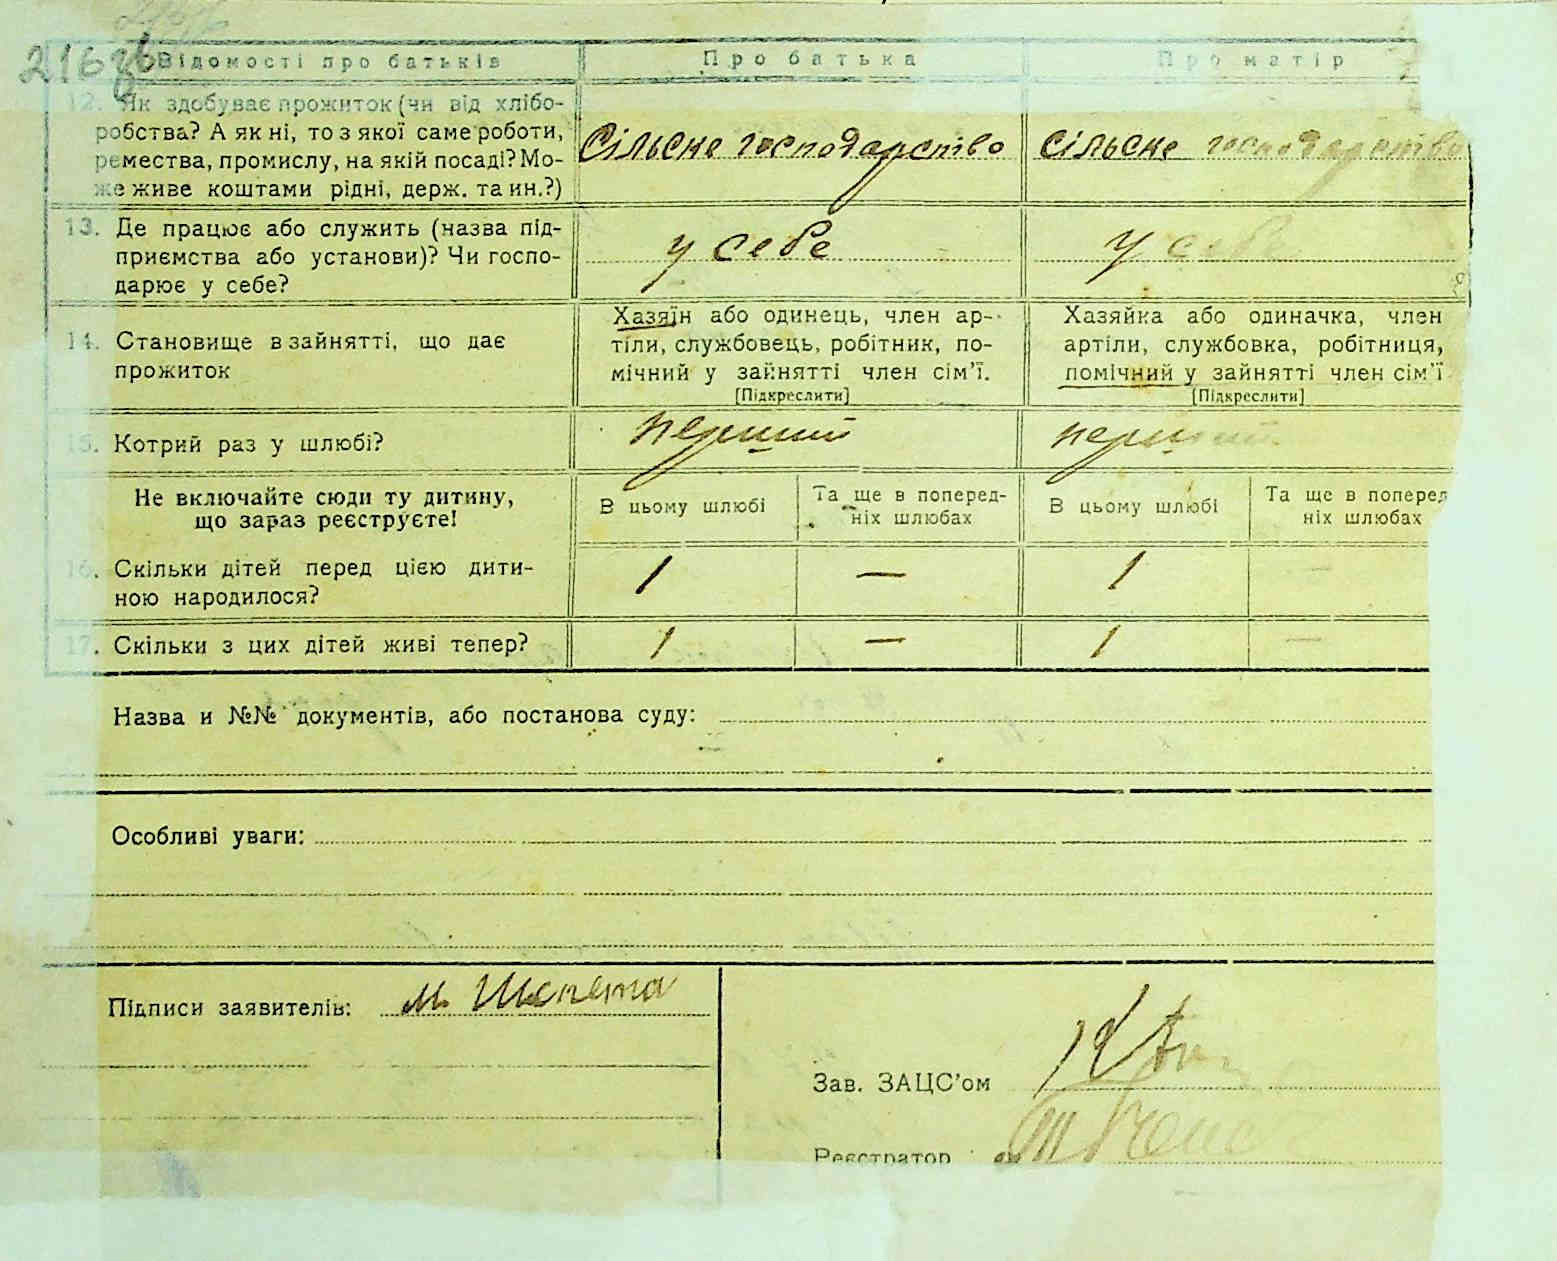 216зв
Відомості про батьків
Про батька
Про матір
12. Як здобуває прожиток (чи від хлібо-
робства? А як ні, то з якої саме роботи,
ремества, промислу, на якій посаді? Мо-
же живе коштами рідні, держ. та ин.?)
Сільске господарство
сільске господарство
13. Де працює або служить (назва під-
приємства або установи)? Чи госпо-
дарює у себе?
у себе
у себе
14. Становище в зайнятті, що дає
прожиток
Хазяїн або одинець, член ар-
тіли, службовець, робітник, по-
мічний у зайнятті член сім’ї.
[Підкреслити]
Хазяйка або одиначка, член
артіли, службовка, робітниця,
помічний у зайнятті член сім’ї
[Підкреслити]
15. Котрий раз у шлюбі?
перший
перший
Не включайте сюди ту дитину,
що зараз реєструєте!
В цьому шлюбі
Та ще в поперед-
ніх шлюбах
В цьому шлюбі
Та ще в поперед
ніх шлюбах
16. Скільки дітей перед цією дити-
ною народилося?
1 — 1 —
17. Скільки з цих дітей живі тепер?
1 — 1 —
Назва и №№ документів, або постанова суду:
Особливі уваги:
Підписи заявителів: М. Шепета
Зав. ЗАЦС’ом
Реєстратор